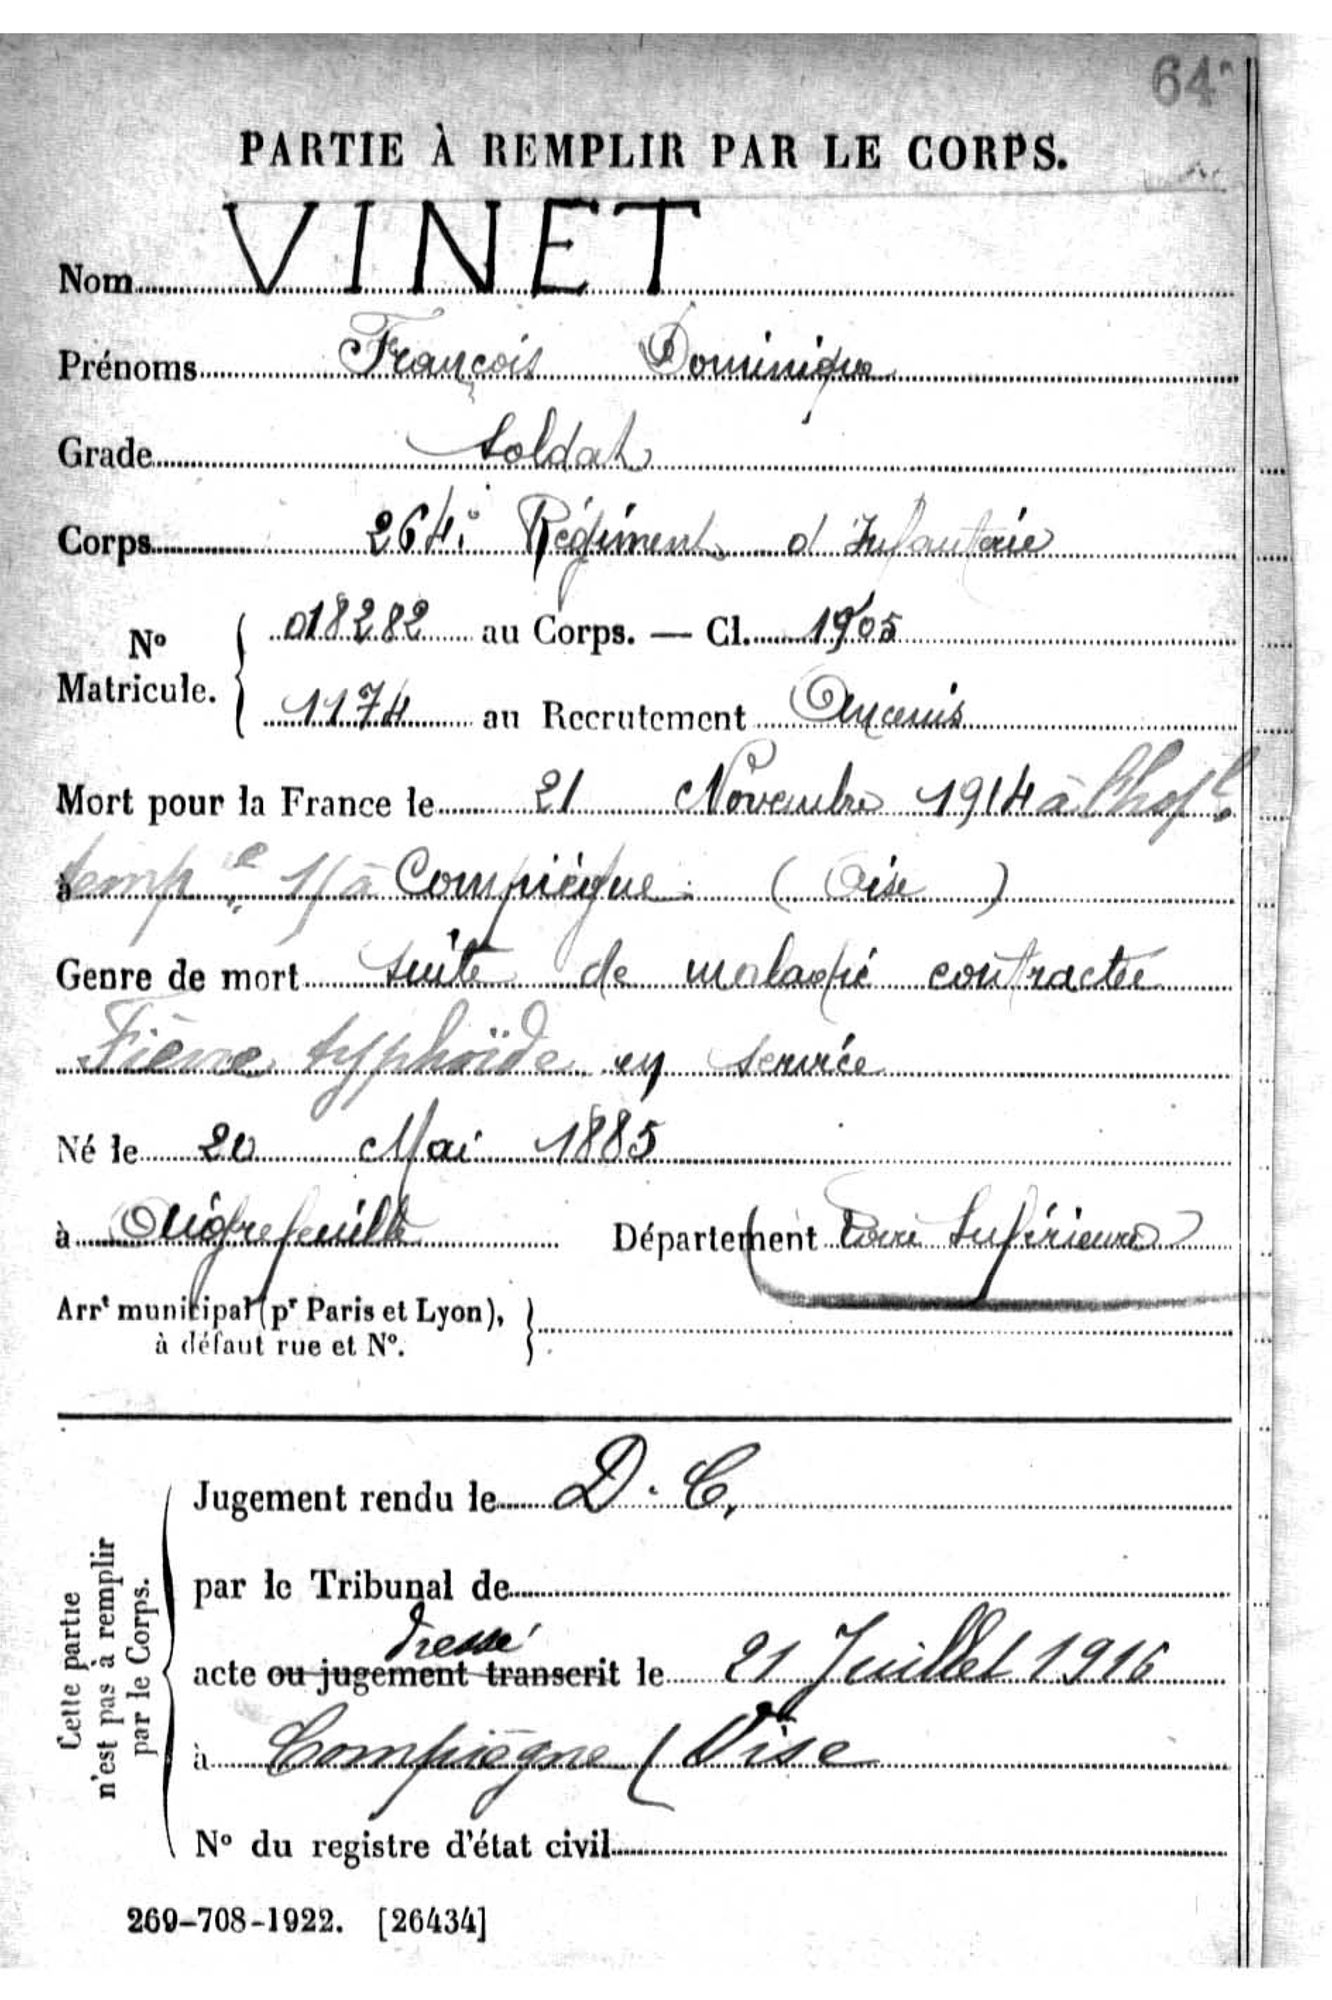 64
PARTIE À REMPLIR PAR LE CORPS.
Nom VINET
Prénoms François Dominique
Grade Soldat
Corps 264e Régiment d'Infanterie
No Matricule. 018282 au Corps. — Cl. 1905
1174 au Recrutement Ancenis
Mort pour la France le 21 Novembre 1914 à l'hopl
à temp re 1/ à Compiègne (Oise)
Genre de mort suite de maladie contractée
Fièvre typhoïde en service
Né le 20 Mai 1885
à Aigrefeuille Département (Loire Inférieure)
Arrt municipal (pr Paris et Lyon),
à défaut rue et No.
Cette partie
n'est pas à remplir
par le Corps.
Jugement rendu le D. C.
par le Tribunal de
dressé
acte ou jugement transcrit le 21 Juillet 1916
à Compiègne (Oise
No du registre d'état civil
269-708-1922. [26434]